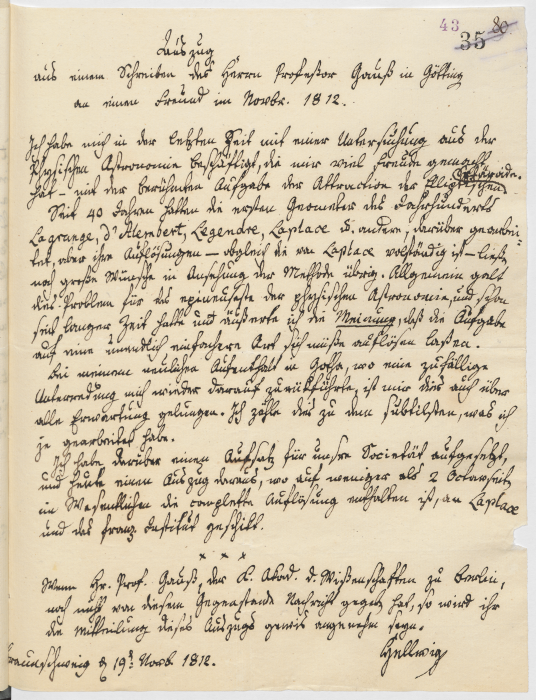 43
35 80
Auszug
aus einem Schreiben des Herrn Professor Gauß in Götting
an einen Freund im Novbr. 1812.
Ich habe mich in der letzten Zeit mit einer Untersuchung aus der
Physischen Astronomie beschäftigt, die mir viel Freude gemacht
hat – mit der berühmten Aufgabe der Attraction der Elliptischen Sphäroide.
Seit 40 Jahren hatten die ersten Geometer des Jahrhunderts
Lagrange, d'Alembert, Legendre, Laplace u. andere, darüber gearbei-
tet, aber ihre Auflösungen – obgleich die von Laplace vollständig ist – ließen
noch große Wünsche in Ansehung der Methode übrig. Allgemein galt
das Problem für das epineuseste der physischen Astronomie, und schon
seit langer Zeit hatte und äußerte ich die Meinung, daß die Aufgabe
auf eine unendlich einfachere Art sich müßte auflösen lassen.
Bei meinem neulichen Aufenthalt in Gotha, wo eine zufällige
Unterredung mich wieder darauf zurückführte, ist mir dies auch über
alle Erwartung gelungen. Ich zähle dies zu dem subtilsten, was ich
je gearbeitet habe.
Ich habe darüber einen Aufsatz für unsre Societät aufgesetzt,
und heute einen Auszug daraus, wo auf weniger als 2 Octavseit
im Wesentlichen die complette Auflösung enthalten ist, an Laplace
und das franz. Institut geschikt.
x x x
Wenn Hr. Prof. Gauß, der K. Akad. d. Wißenschaften zu Berlin,
noch nicht von diesem Gegenstande Nachricht gegeb hat, so wird ihr
die Mittheilung dieses Auszugs gewis angenehm seyn.
Braunschweig d 19t Novb. 1812.
Hellwig